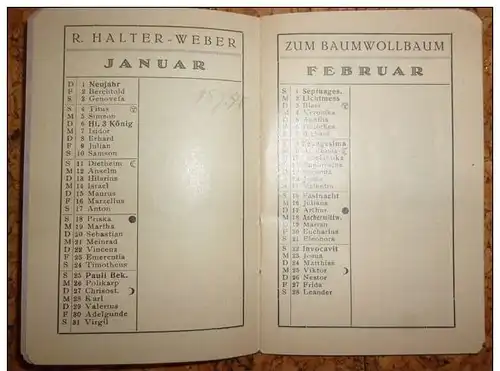 R. HALTER-WEBER
JANUAR
D 1 Neujahr
F 2 Berchtold
S 3 Genovefa
S 4 Titus
M 5 Simeon
D 6 Hl. 3 König
M 7 Isidor
D 8 Erhard
F 9 Julian
S 10 Samson
S 11 Diethelm
M 12 Anselm
D 13 Hilarius
M 14 Israel
D 15 Maurus
F 16 Marzellus
S 17 Anton
S 18 Priska
M 19 Martha
D 20 Sebastian
M 21 Meinrad
D 22 Vincenz
F 23 Emerentia
S 24 Timotheus
S 25 Pauli Bek.
M 26 Polikarp
D 27 Chrisost.
M 28 Karl
D 29 Valerius
F 30 Adelgunde
S 31 Virgil
ZUM BAUMWOLLBAUM
FEBRUAR
S 1 Septuages.
M 2 Lichtmess
D 3 Blasi
M 4 Veronika
D 5 Agatha
S 15 Fastnacht
M 16 Juliana
D 17
M 18 Aschermittw.
D 19
F 20 Eucharius
S 21 Eleonora
S 22 Invocavit
M 23 Josua
D 24 Matthias
M 25 Viktor
D 26 Nestor
F 27 Frida
S 28 Leander